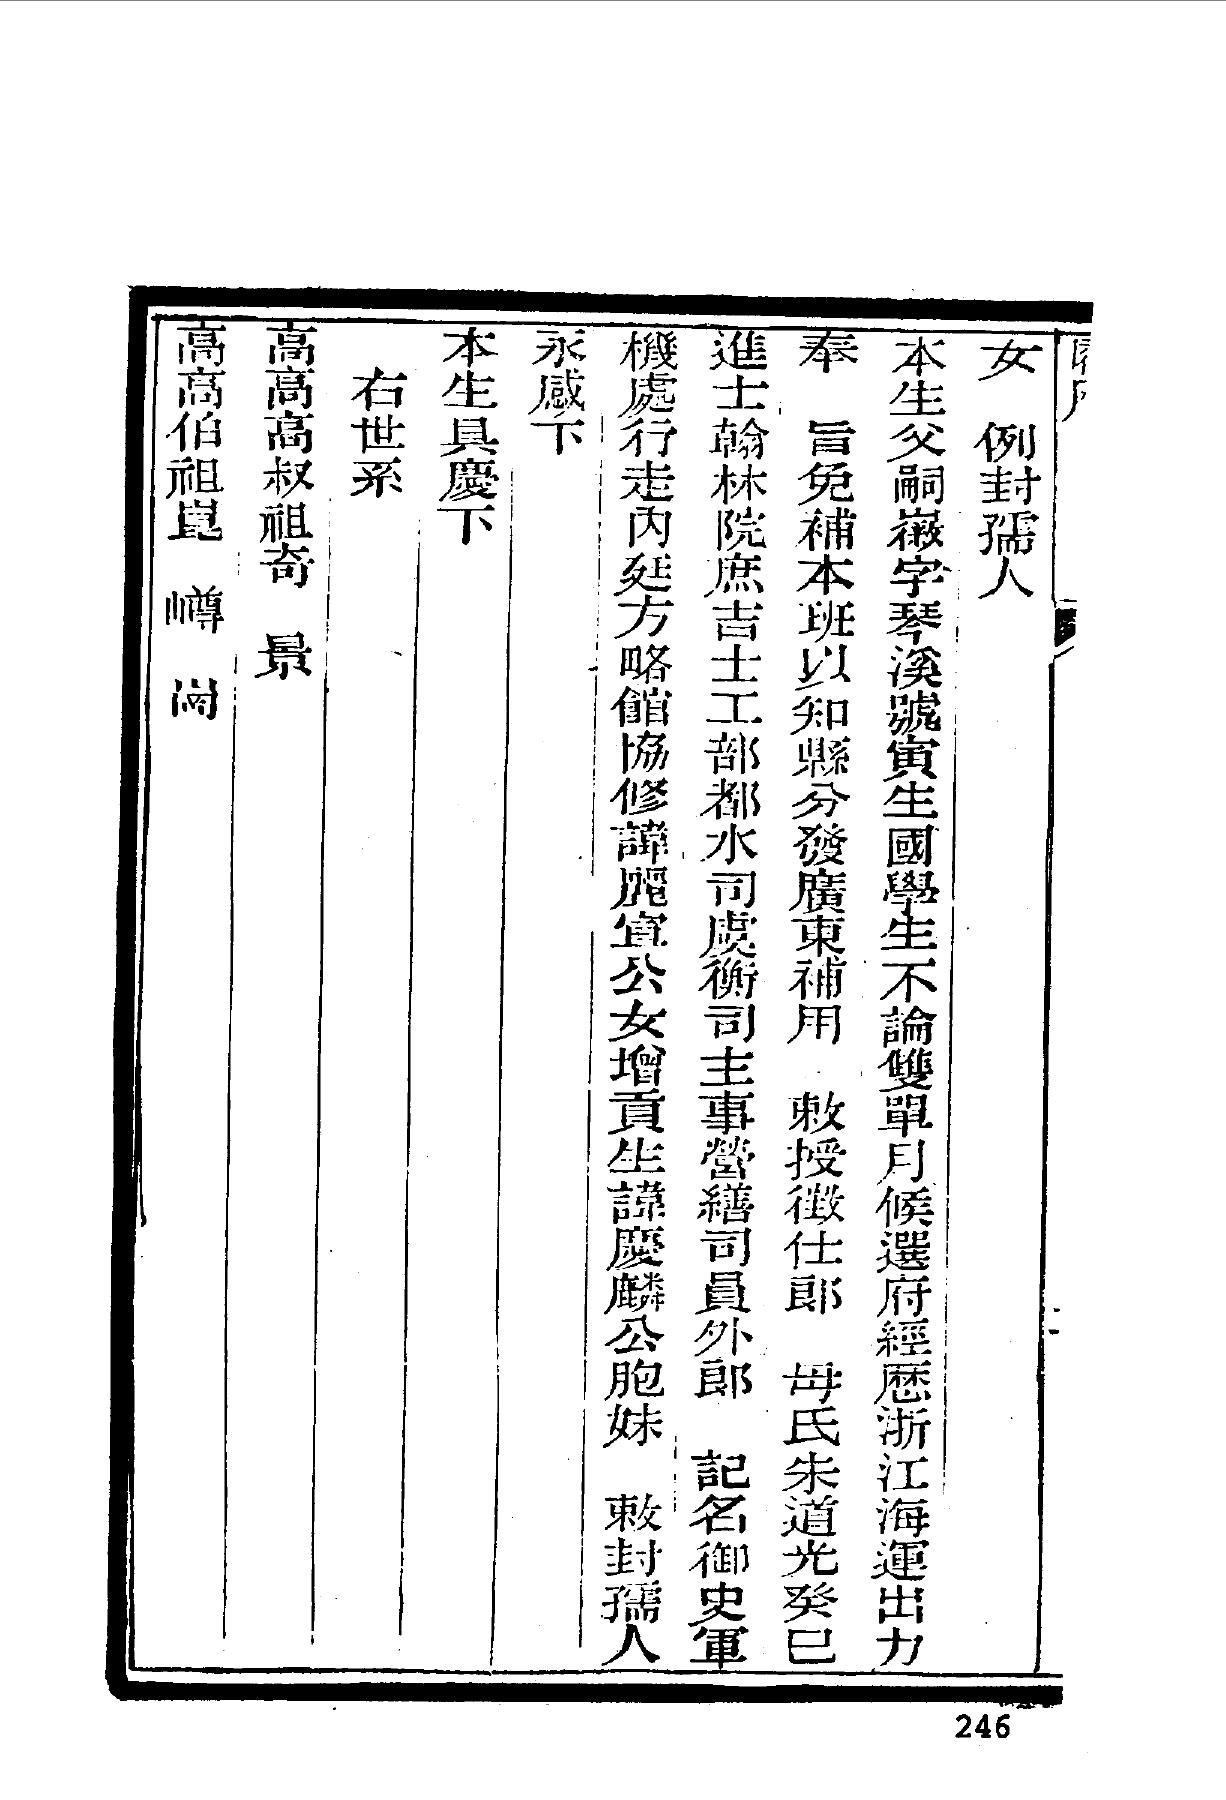 女　例封孺人
本生父嗣嶶字琴溪號寅生國學生不論雙單月候選府經歷浙江海運出力
奉　旨免補本班以知縣分發廣東補用　敕授徵仕郎　母氏朱道光癸巳
進士翰林院庶吉士工部都水司虞衡司主事營繕司員外郎　記名御史軍
機處行走內廷方略館協修諱麗宣公女增貢生諱慶麟公胞妹　敕封孺人
永感下
本生具慶下
右世系
高高高叔祖奇　景
高高伯祖崑　嶟　崗
246